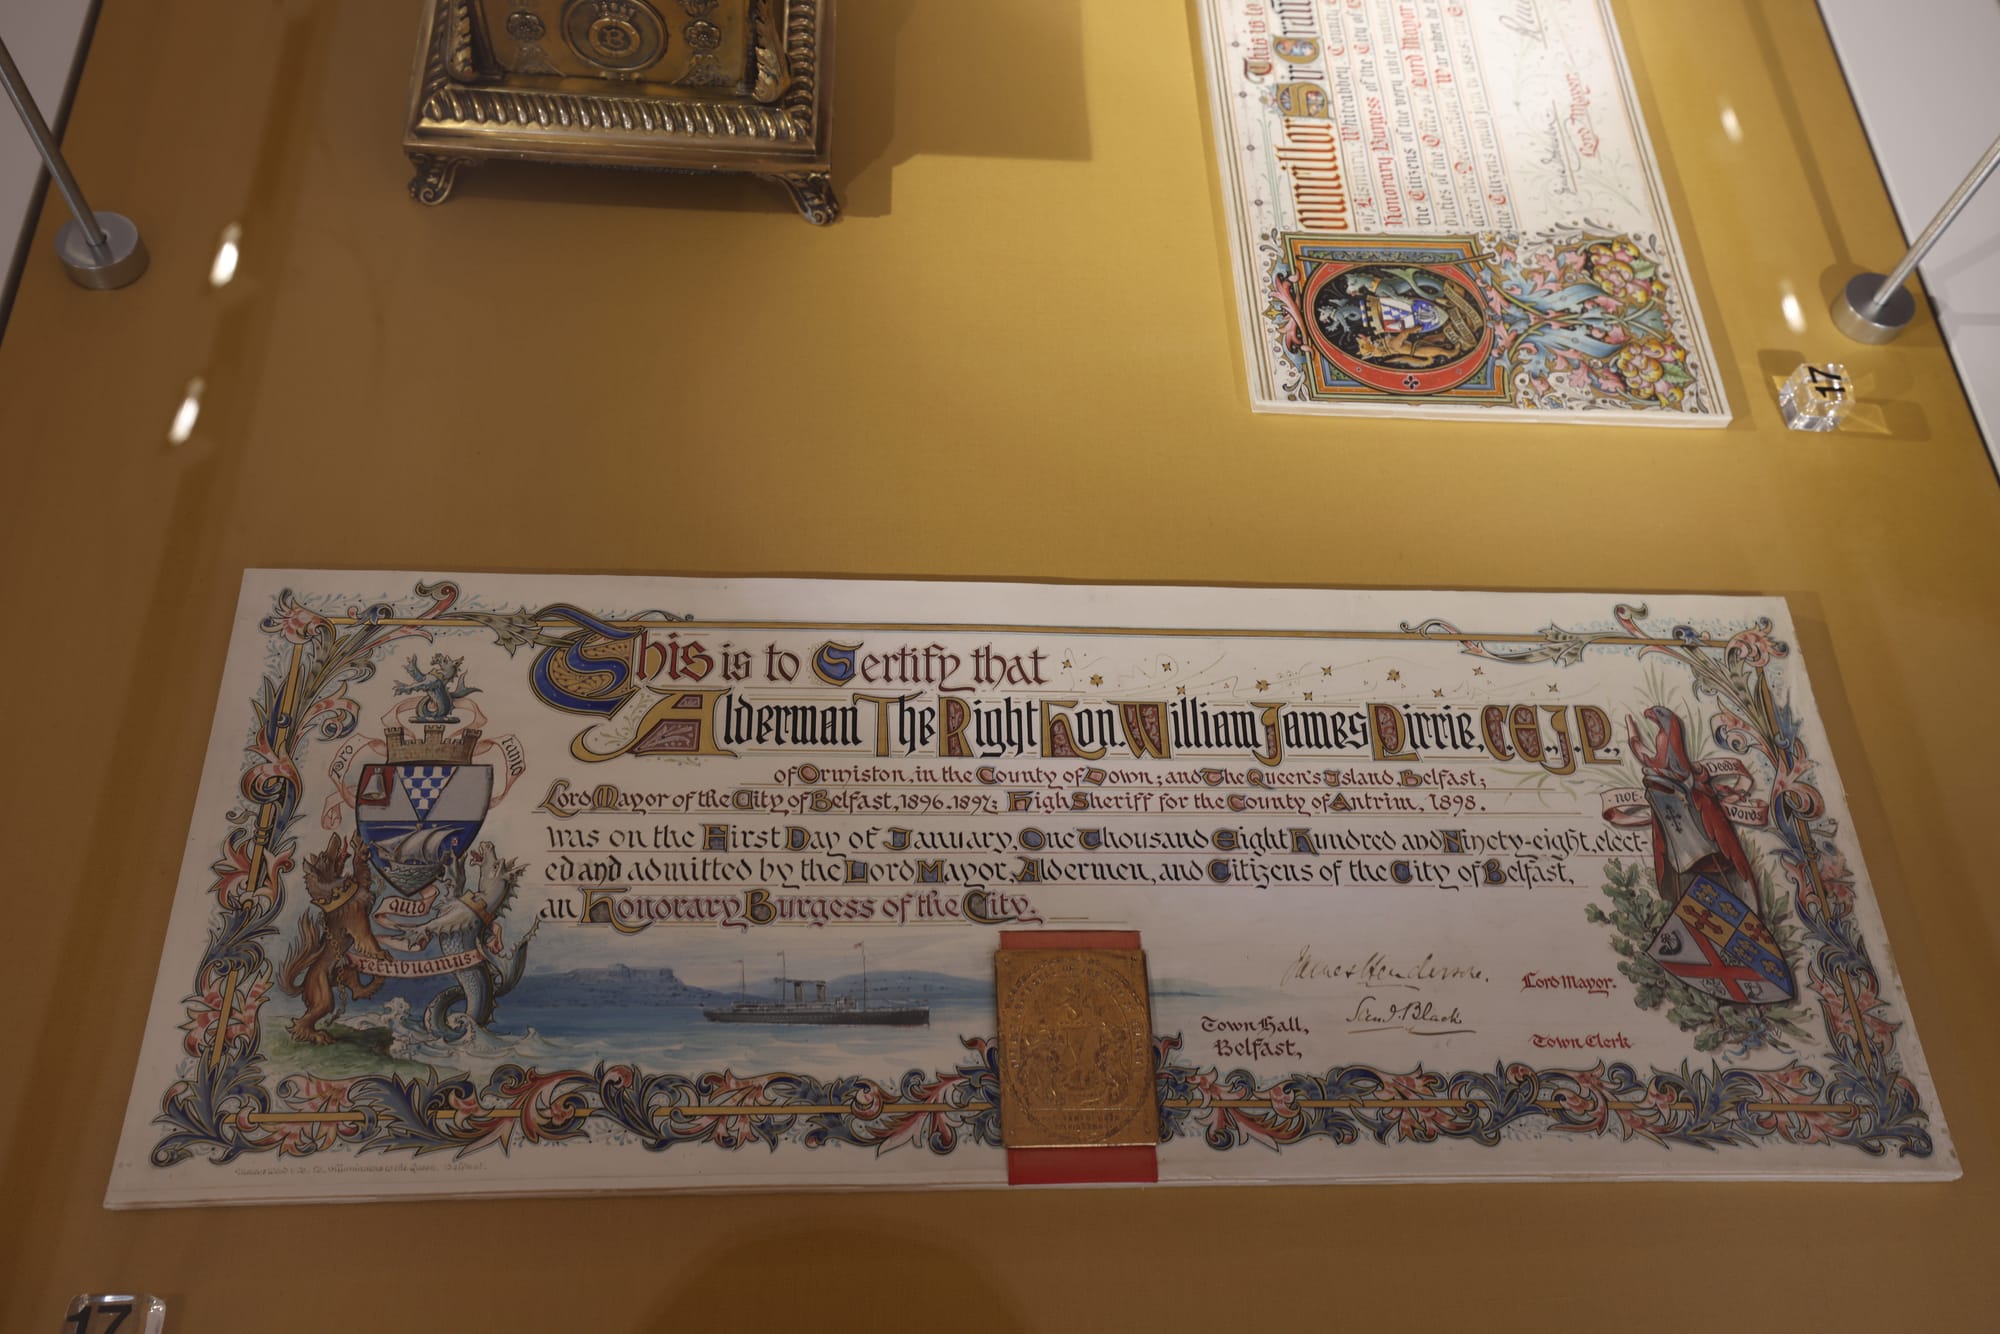 This is to
Councillor Sir
of Lismara, Whiteabbey, County
Honorary Burgess of the City of
the Citizens of the very able manner
duties of the Office of Lord Mayor
after the Declaration of War when he
the Citizens could
Lord Mayor.
17
This is to Certify that
Alderman The Right Hon. William James Pirrie, C.E., J.P.,
of Ormiston, in the County of Down; and The Queen's Island, Belfast;
Lord Mayor of the City of Belfast, 1896.1897; High Sheriff for the County of Antrim, 1898.
was on the First Day of January, One Thousand Eight Hundred and Ninety-eight, elect-
ed and admitted by the Lord Mayor, Aldermen, and Citizens of the City of Belfast,
an Honorary Burgess of the City.
pro tanto
quid
retribuamus
Deeds
not
Words
James Henderson. Lord Mayor.
Saml Black
Town Hall,
Belfast,
Town Clerk
Marcus Ward & Co., Illuminators to the Queen, Belfast.
17